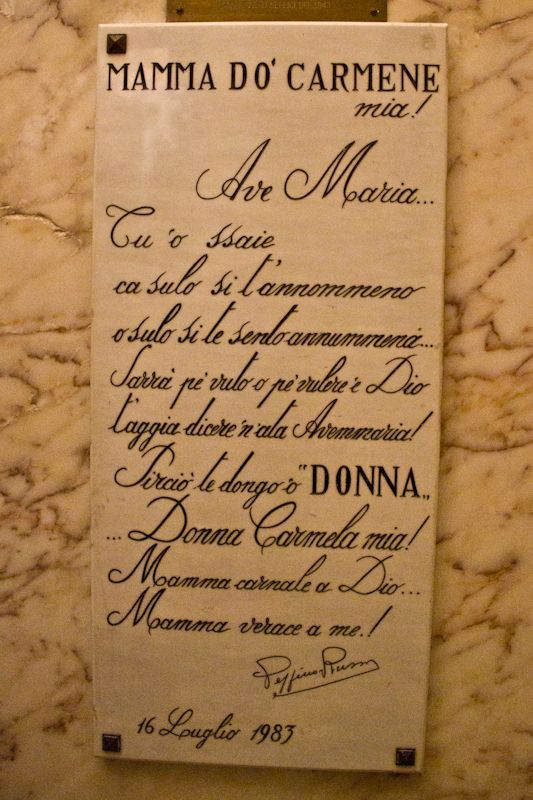 MAMMA DO' CARMENE
mia!
Ave Maria...
Tu 'o ssaie
ca sulo si t'annommeno
o sulo si te sento annummenà...
Sarrà pe' vuto o pe' vulere 'e Dio
t'aggia dicere 'n'ata Avemmaria!
Pirciò te dongo 'o "DONNA„
... Donna Carmela mia!
Mamma carnale a Dio...
Mamma verace a me.!
Peppino Russo
16 Luglio 1983